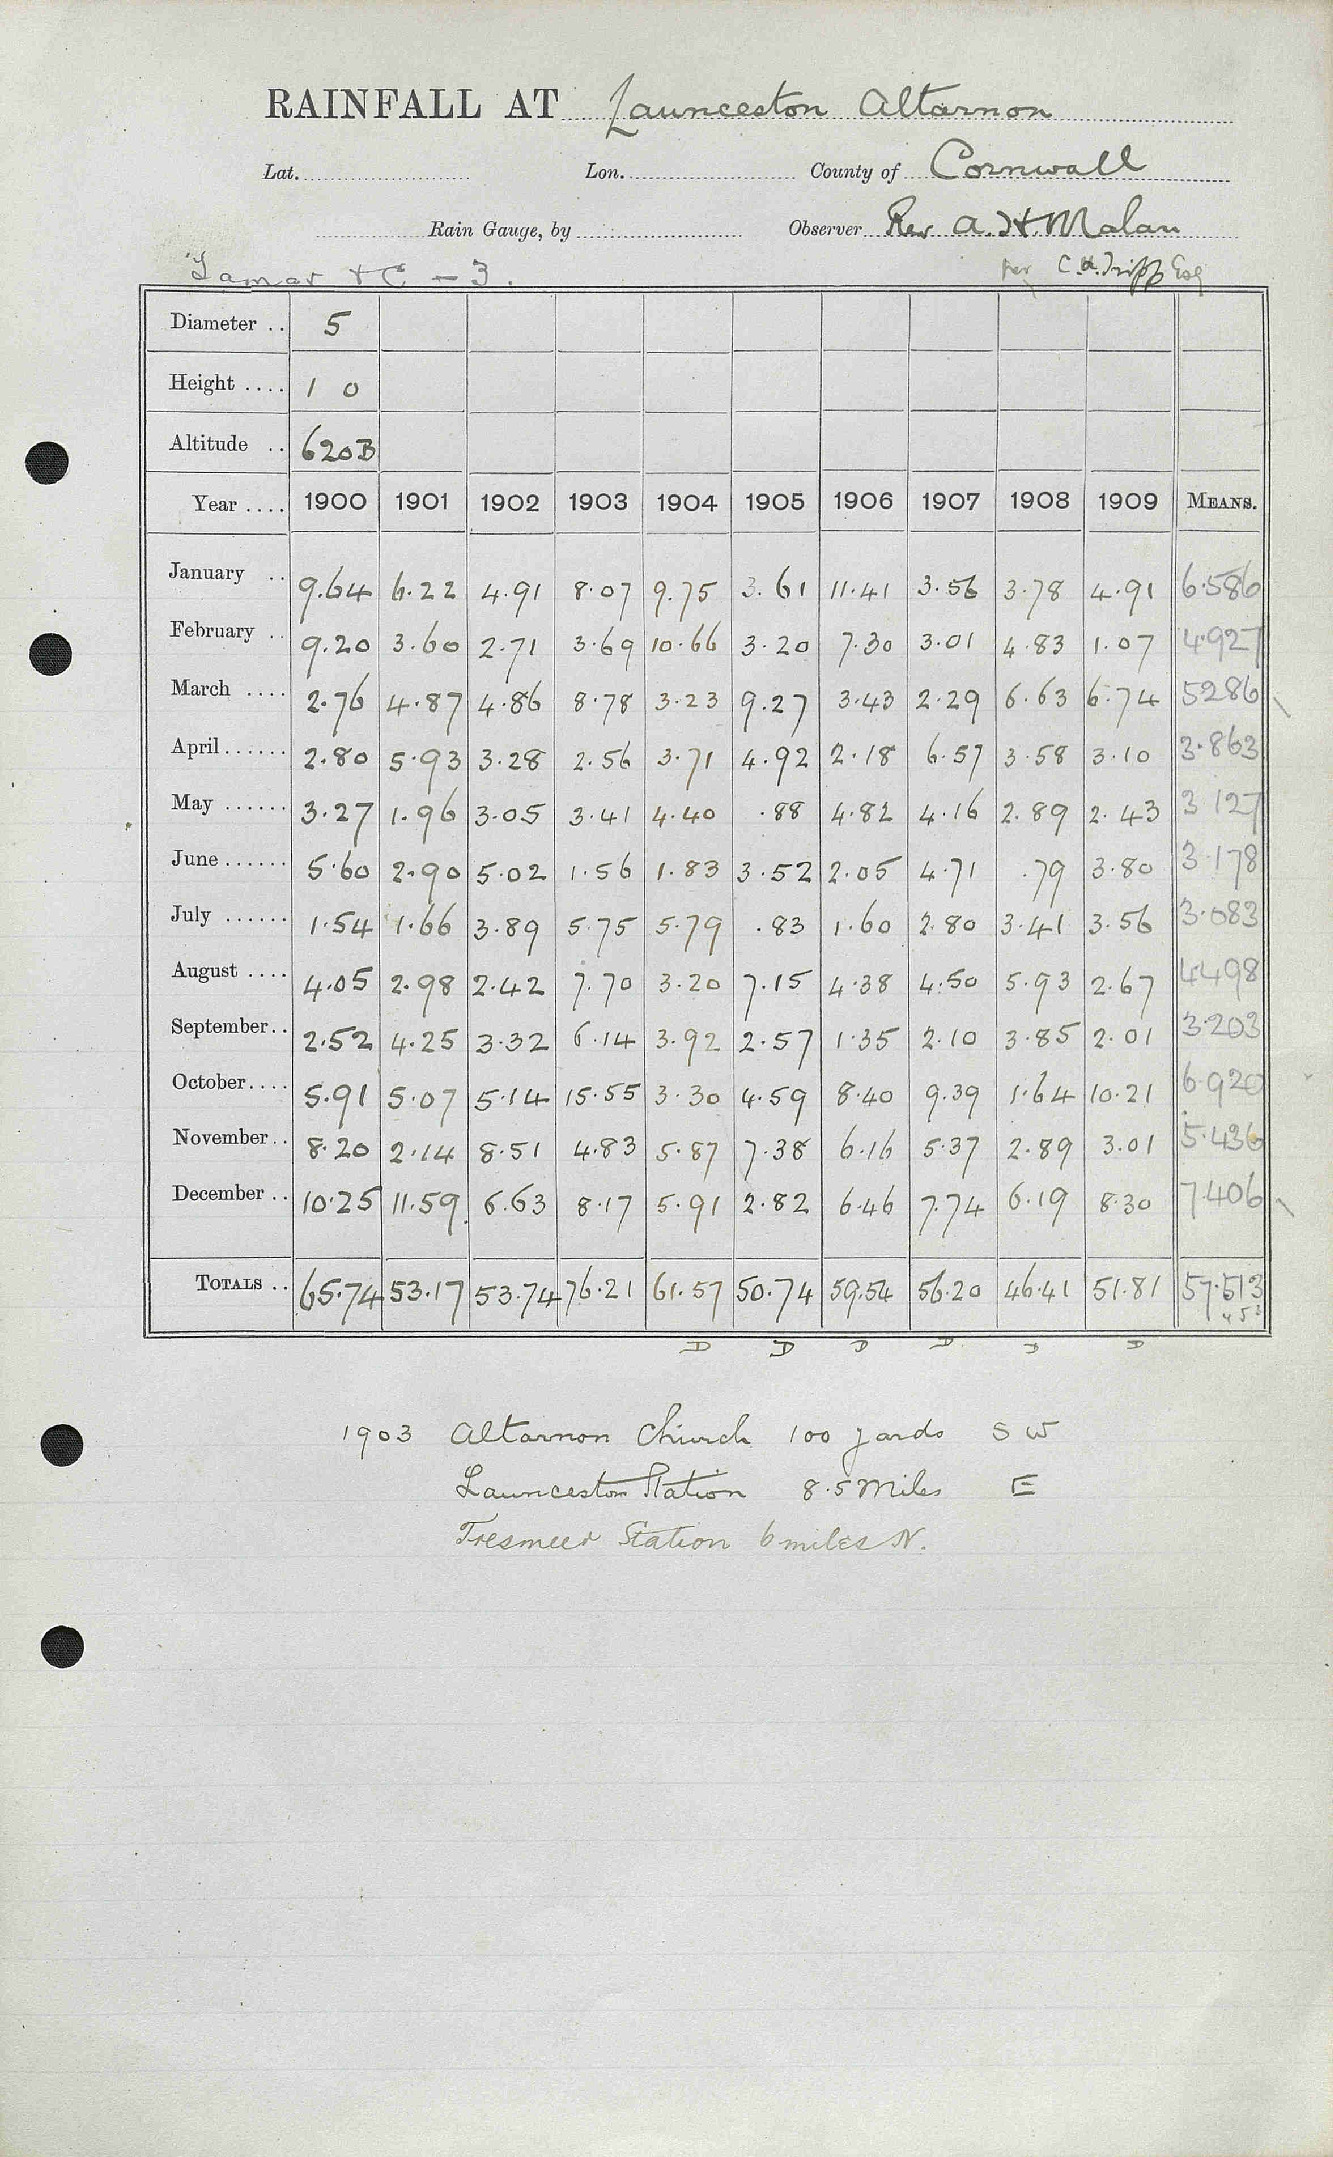 RAINFALL AT Launceston Altarnon
Lat. Lon. County of Cornwall
Rain Gauge, by Observer Rev A. H. Malan
Tamar & C - 3. per C. H. Tripp Esq
Diameter .. 5
Height .... 1 0
Altitude .. 620B
Year .... 1900 1901 1902 1903 1904 1905 1906 1907 1908 1909 MEANS.
January .. 9.64 6.22 4.91 8.07 9.75 3.61 11.41 3.56 3.78 4.91 6.586
February .. 9.20 3.60 2.71 3.69 10.66 3.20 7.30 3.01 4.83 1.07 4.927
March .... 2.76 4.87 4.86 8.78 3.23 9.27 3.43 2.29 6.63 6.74 5286
April ...... 2.80 5.93 3.28 2.56 3.71 4.92 2.18 6.57 3.58 3.10 3.863
May ...... 3.27 1.96 3.05 3.41 4.40 .88 4.82 4.16 2.89 2.43 3 127
June ...... 5.60 2.90 5.02 1.56 1.83 3.52 2.05 4.71 .79 3.80 3.178
July ...... 1.54 1.66 3.89 5.75 5.79 .83 1.60 2.80 3.41 3.56 3.083
August .... 4.05 2.98 2.42 7.70 3.20 7.15 4.38 4.50 5.93 2.67 4498
September .. 2.52 4.25 3.32 6.14 3.92 2.57 1.35 2.10 3.85 2.01 3.203
October .... 5.91 5.07 5.14 15.55 3.30 4.59 8.40 9.39 1.64 10.21 6.920
November .. 8.20 2.14 8.51 4.83 5.87 7.38 6.16 5.37 2.89 3.01 5.436
December .. 10.25 11.59 6.63 8.17 5.91 2.82 6.46 7.74 6.19 8.30 7.406
TOTALS .. 65.74 53.17 53.74 76.21 61.57 50.74 59.54 56.20 46.41 51.81 57.513
D D D D D D
1903 Altarnon Church 100 yards S W
Launceston Station 8.5 Miles E
Tresmeer Station 6 miles N.